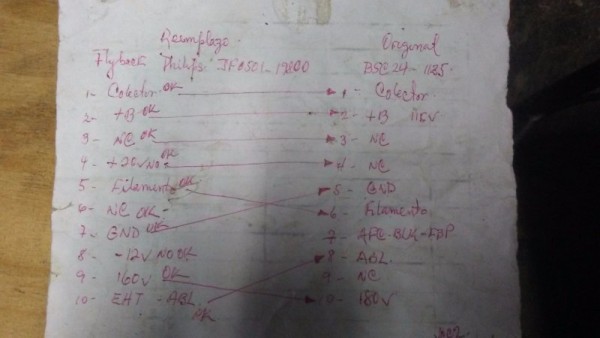 Reemplazo Original
Flyback Philips JF0501-19100 BSC24-1125
1- Colector OK 1 Colector
2- +B OK 2- +B 115V
3- NC OK 3- NC
4- +20V NO OK 4- NC
5- Filamento OK 5- GND
6- NC OK- 6- Filamento
7- GND OK 7- AFC-BLK-FBP
8- -12V NO OK 8- ABL
9- 160V OK 9- NC
10- EHT - ABL OK 10- 180V